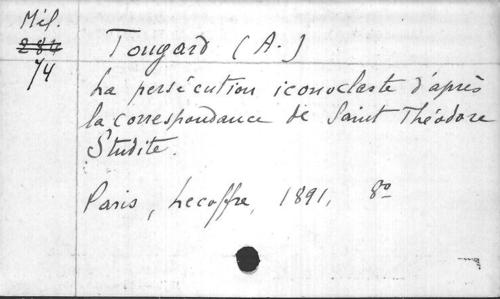 Mél.
284
74
Tougard (A.)
La persécution iconoclaste d'après
la correspondance de Saint Théodore
Studite.
Paris, Lecoffre, 1891, 8º